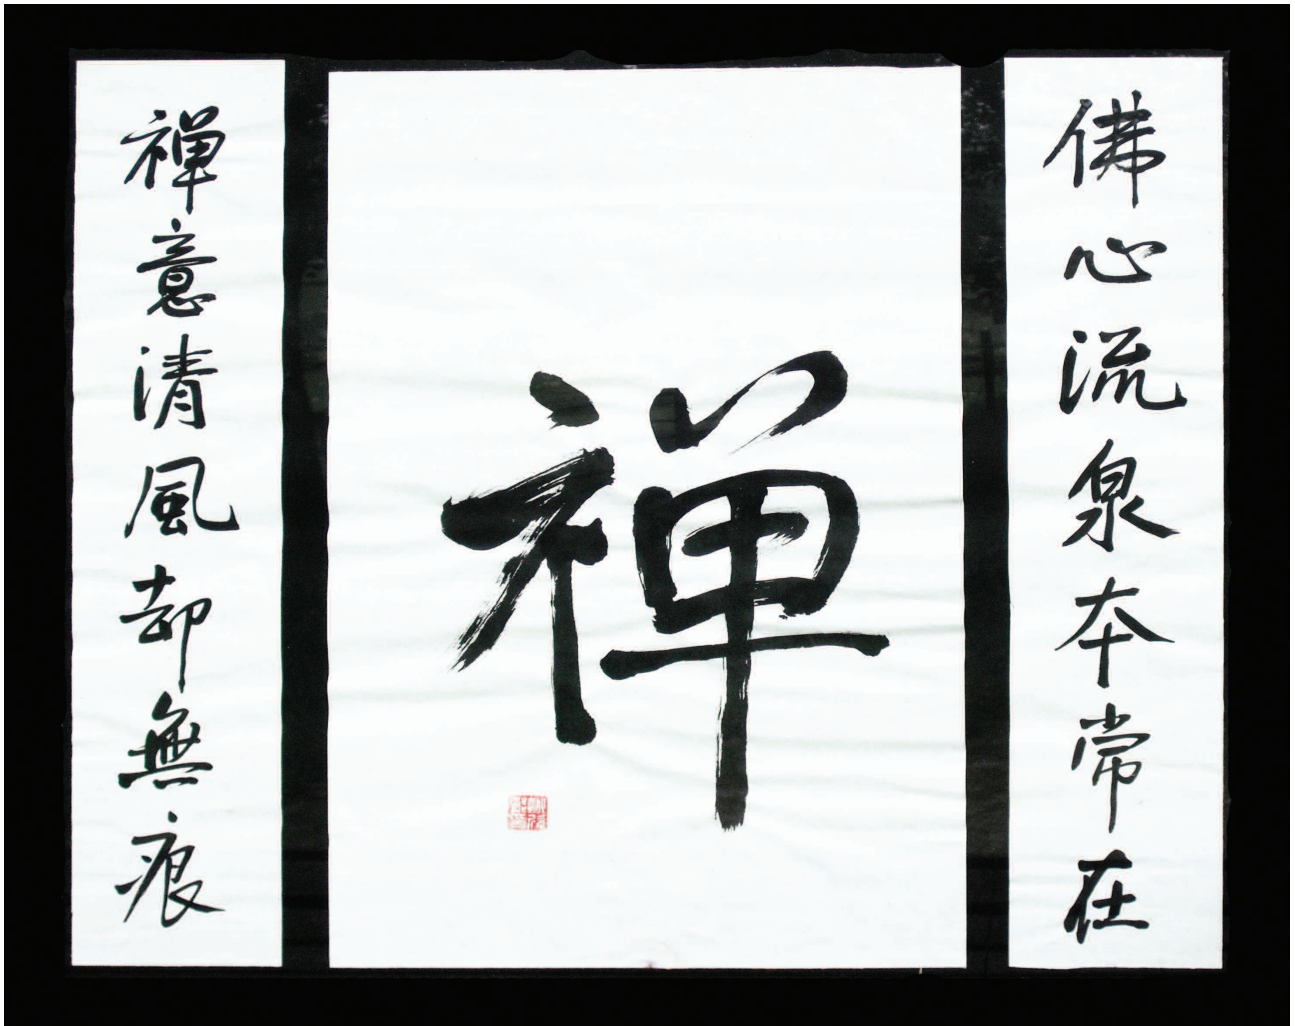 佛心流泉本常在
禅
禅意清風却無痕